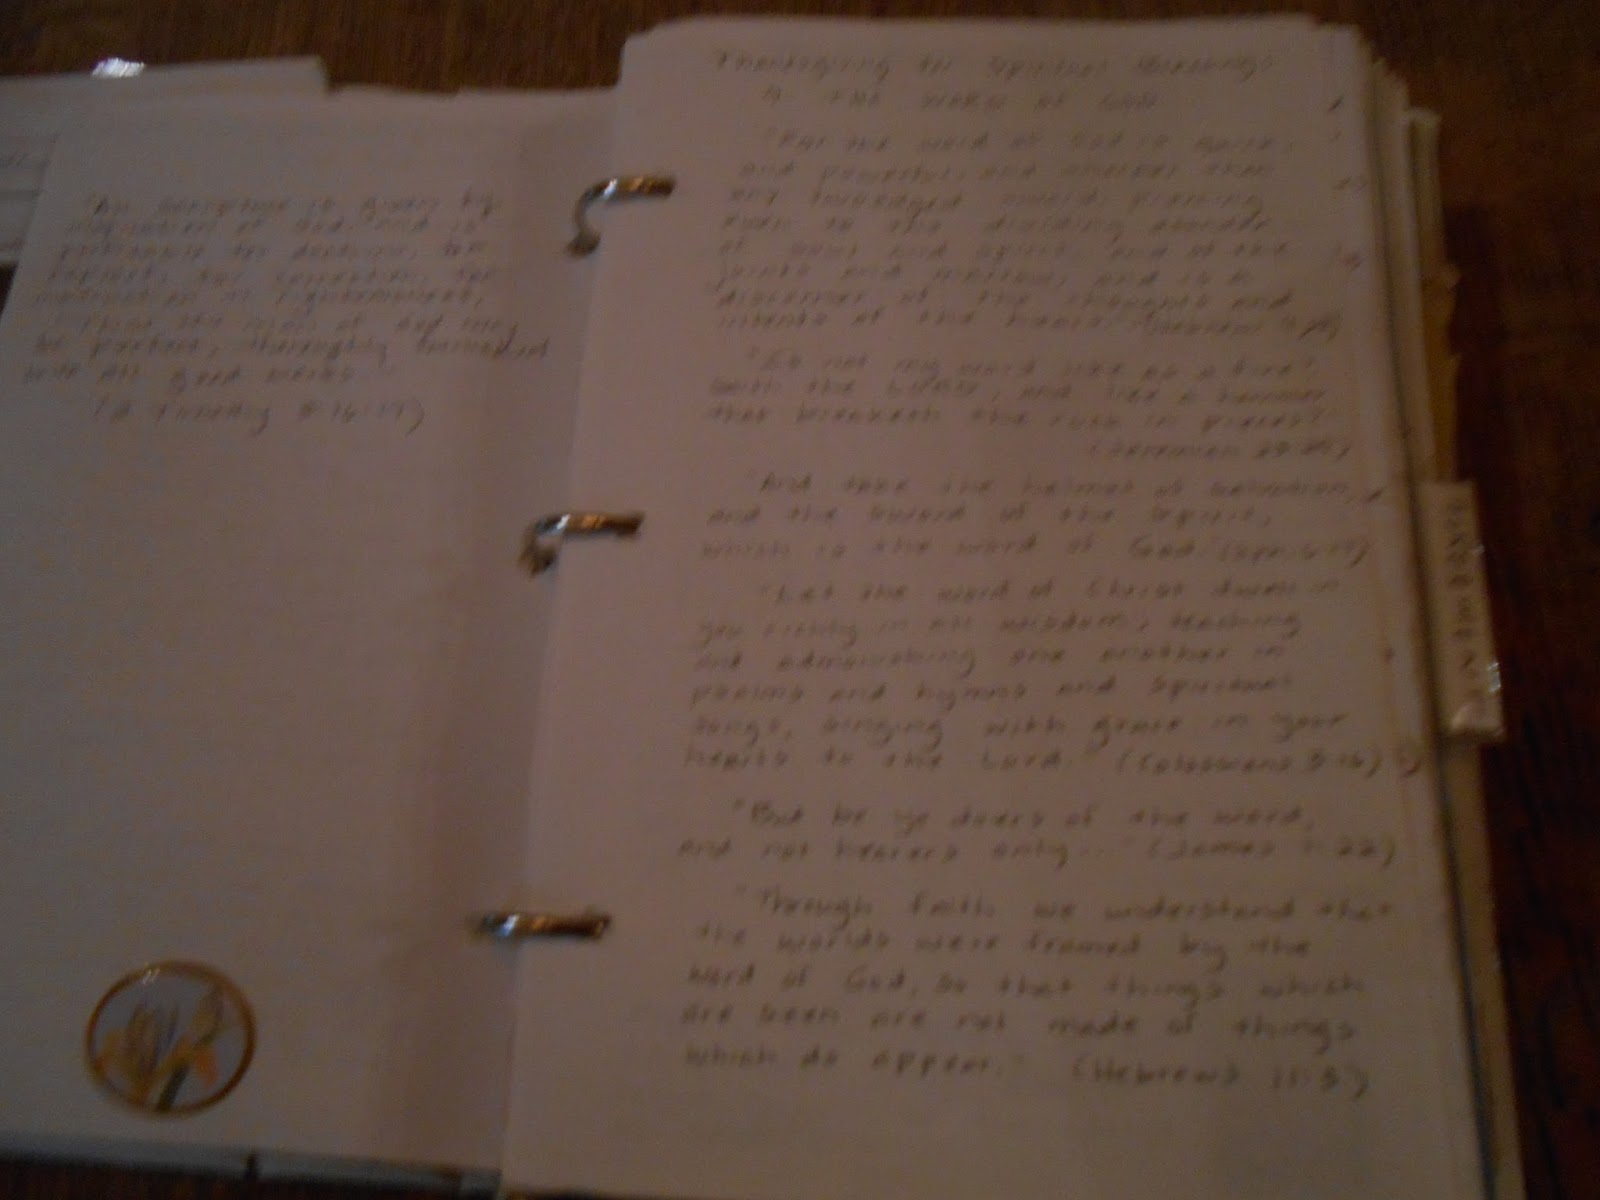 "All scripture is given by
inspiration of God and is
profitable for doctrine, for
reproof, for correction, for
instruction in righteousness,
That the man of God may
be perfect, thoroughly furnished
unto all good works."
(2 Timothy 3:16-17)
Thanksgiving for Spiritual Blessings
THE WORD OF GOD
"For the word of God is quick,
and powerful, and sharper than
any twoedged sword, piercing
even to the dividing asunder
of soul and spirit, and of the
joints and marrow, and is a
discerner of the thoughts and
intents of the heart." (Hebrews 4:12)
"Is not my word like as a fire?
saith the LORD, and like a hammer
that breaketh the rock in pieces?"
(Jeremiah 23:29)
"And take the helmet of salvation,
and the sword of the Spirit,
which is the word of God" (Eph. 6:17)
"Let the word of Christ dwell in
you richly in all wisdom, teaching
and admonishing one another in
psalms and hymns and spiritual
songs, singing with grace in your
hearts to the Lord." (Colossians 3:16)
"But be ye doers of the word,
and not hearers only..." (James 1:22)
"Through faith we understand that
the worlds were framed by the
word of God, so that things which
are seen are not made of things
which do appear." (Hebrews 11:3)